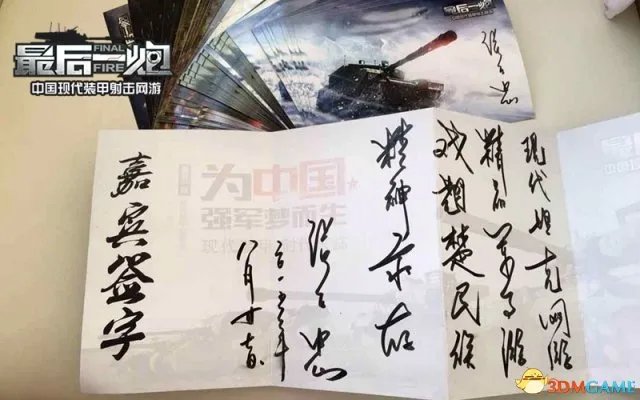 最后一炮
FINAL
FIRE
中国现代装甲射击网游
最后一炮
张召忠
现代坦克网游
精品军事游
戏翘楚民族
精神永存
张召忠
二〇一五年
八月十
嘉宾签字
为中国
强军梦而生
现代
3DMGAME